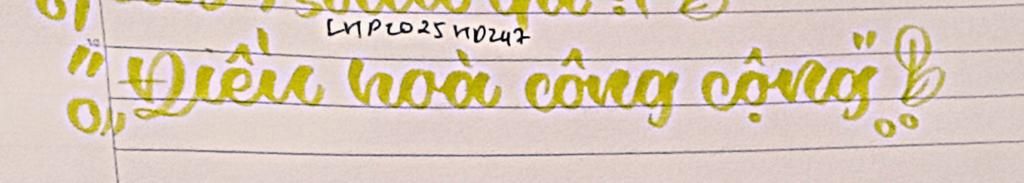 LMP2025 MD247
"Điều hoà công cộng"